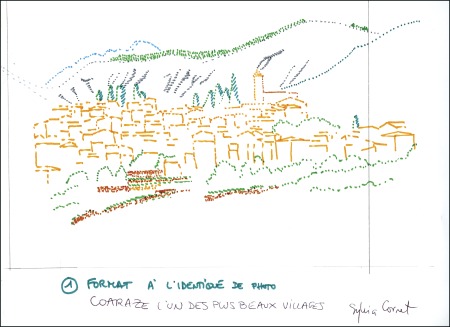 ① FORMAT À L'IDENTIQUE DE PHOTO
COARAZE L'UN DES PLUS BEAUX VILLAGES
Sylvia Cornet